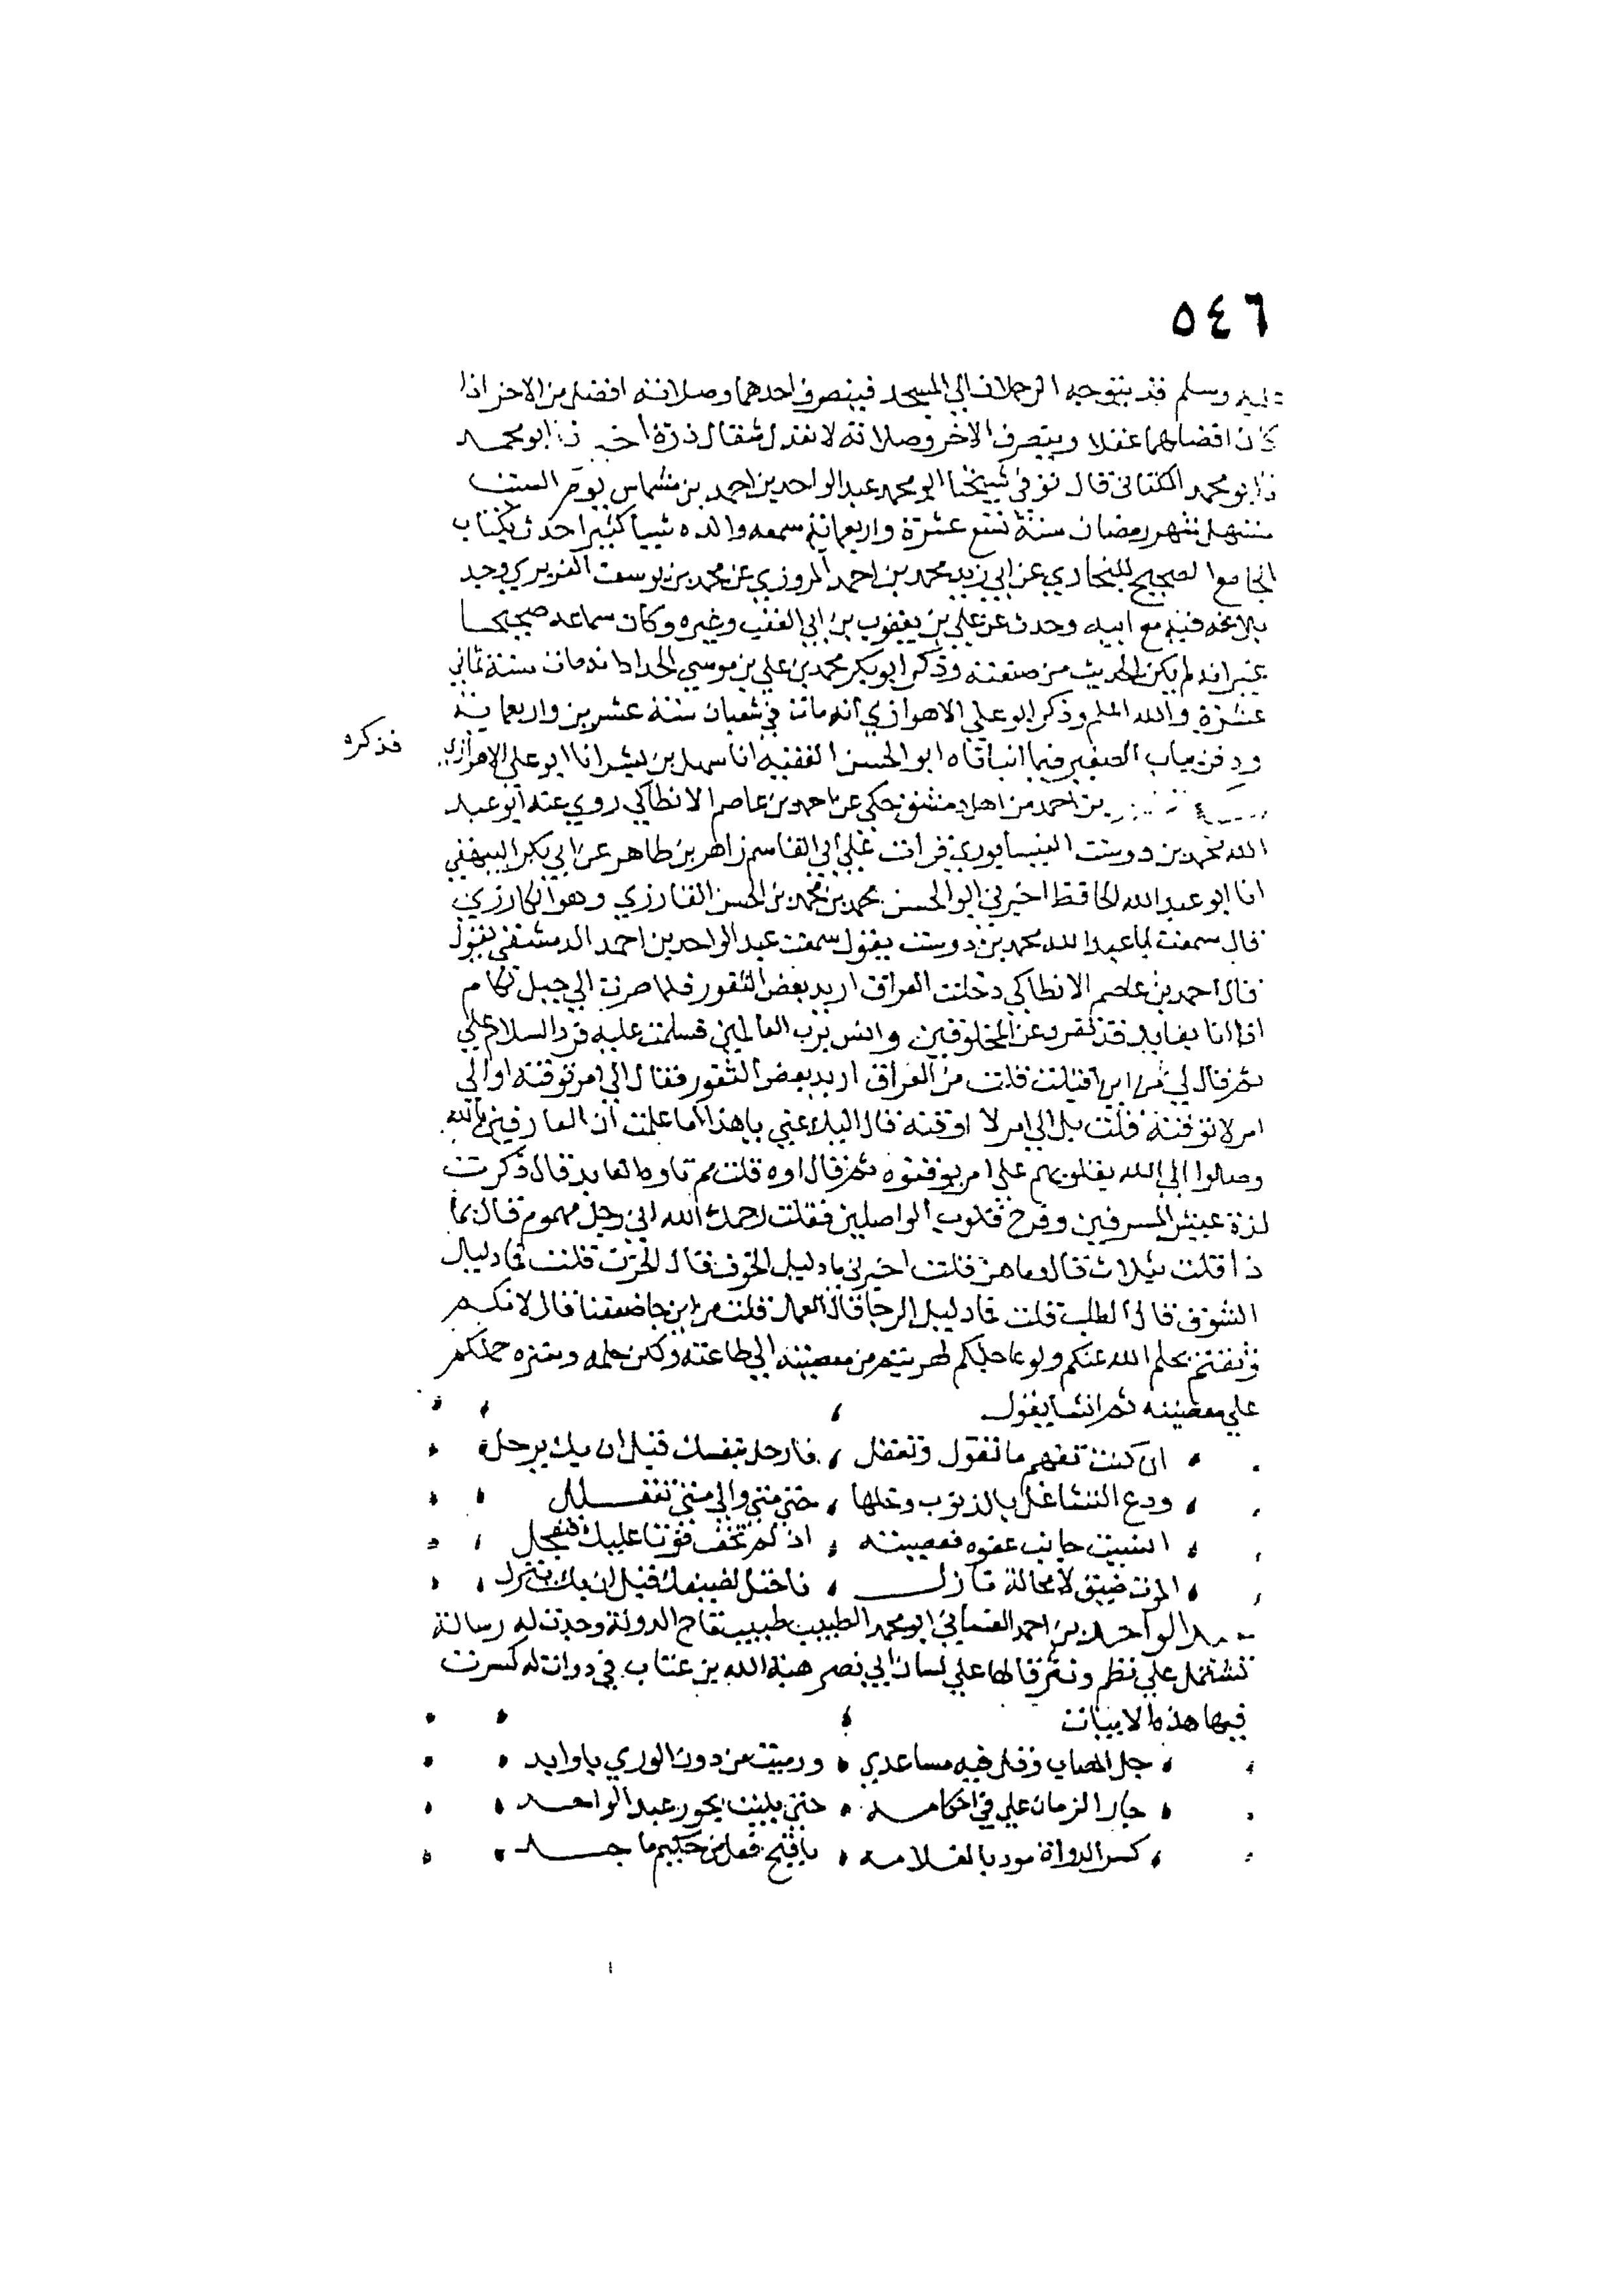 ٥٤٦
وسلم قد يتوجه الرجلان الي المسجد فينصرف احدهما وصلاته افضل من الاخر اذا
كان افضلهما عقلا وينصرف الاخر وصلاته لا تعدل مثقال ذرة ابو محمد
ابو محمد الكتاني قال توفي شيخنا ابو محمد عبد الواحد بن احمد بن مشماس يوم السبت
مستهل شهر رمضان سنة تسع عشرة واربعمائة سمعه والده شيئا كثيرا حدث بكتاب
الجامع الصحيح للبخاري عن ابي زيد محمد بن احمد المروزي عن محمد بن يوسف الفربري وجد
بلاغه فيه مع ابيه وحدث عن علي بن يعقوب بن ابي العقب وغيره وكان سماعه صحيحا
غير انه لم يكن الحديث من صنعته وذكر ابو بكر محمد بن علي بن موسي الحداد انه مات سنة ثماني
عشرة والله اعلم وذكر ابو علي الاهوازي انه مات في شعبان سنة عشرين واربعماية
ودفن بباب الصغير فيما انباناه ابو الحسن الفقيه انا سهل بن بشر انا ابو علي الاهوازي فذكره
بن احمد من اهل دمشق حكي عن احمد بن عاصم الانطاكي روي عنه ابو عبد
الله محمد بن دوست النيسابوري قرات علي ابي القاسم زاهر بن طاهر عن ابي بكر البيهقي
انا ابو عبد الله الحافظ اخبرني ابو الحسن محمد بن محمد بن الحسن القارزي وهو الكارزي
قال سمعت ابا عبد الله محمد بن دوست يقول سمعت عبد الواحد بن احمد الدمشقي يقول
قال احمد بن عاصم الانطاكي دخلت العراق اريد بعض الثغور فلما صرت الي جبل لكام
اذا انا بعابد قد تفرد عن المخلوقين وانس برب العالمين فسلمت عليه فرد السلام علي
ثم قال لي من اين اقبلت قلت من العراق اريد بعض الثغور فقال الي امر توقنه او الي
امر لا توقنه فقلت بل الي امر لا اوقنه قال اليك عني يا هذا اما علمت ان العارفين بالله
وصلوا الي الله بقلوبهم علي امر يوقنوه ثم قال اوه قلت مم تاوه العابد قال ذكرت
لذة عيش المسرفين وفرح قلوب الواصلين فقلت رحمك الله اني رجل مهموم قال بما
ذا قلت بثلاث قال وما هن قلت اخبرني ما دليل الخوف قال الحزن قلت فما دليل
الشوق قال الطلب قلت فما دليل الرجا قال العمل قلت من اين جا ضعفنا قال لانكم
وثقتم بحلم الله عنكم ولو عاجلكم لهربتم من معصيته الي طاعته ولكن حلمه وستره حملكم
علي معصيته ثم انشا يقول
ان كنت تفهم ما تقول وتعقل ، فارحل بنفسك قبل ان بك يرحل
ودع التشاغل بالذنوب وخلها ، حتي متي والي متي تتعلل
انسيت جانب عفوه فعصيته ، اذ لم تخف فوتا عليك فيعجل
الموت ضيق لا محالة نازل ، فاختل لضيفك قبل ان بك ينزل
عبد الواحد بن احمد العثماني ابو محمد الطبيب طبيب تاج الدولة وجدت له رسالة
تشتمل علي نظم ونثر قالها علي لسان ابي نصر هبة الله بن عتاب في دواة له كسرت
فيها هذه الابيات
جل المصاب وقل فيه مساعدي ، ورميت من دون الوري باوابد
جار الزمان علي في احكامه ، حتي بليت بجور عبد الواحد
كسر الدواة مودبا لغلامه ، يا قبح فعل من حكيم ماجد